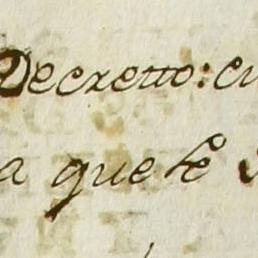 Decretto: cu
a que se